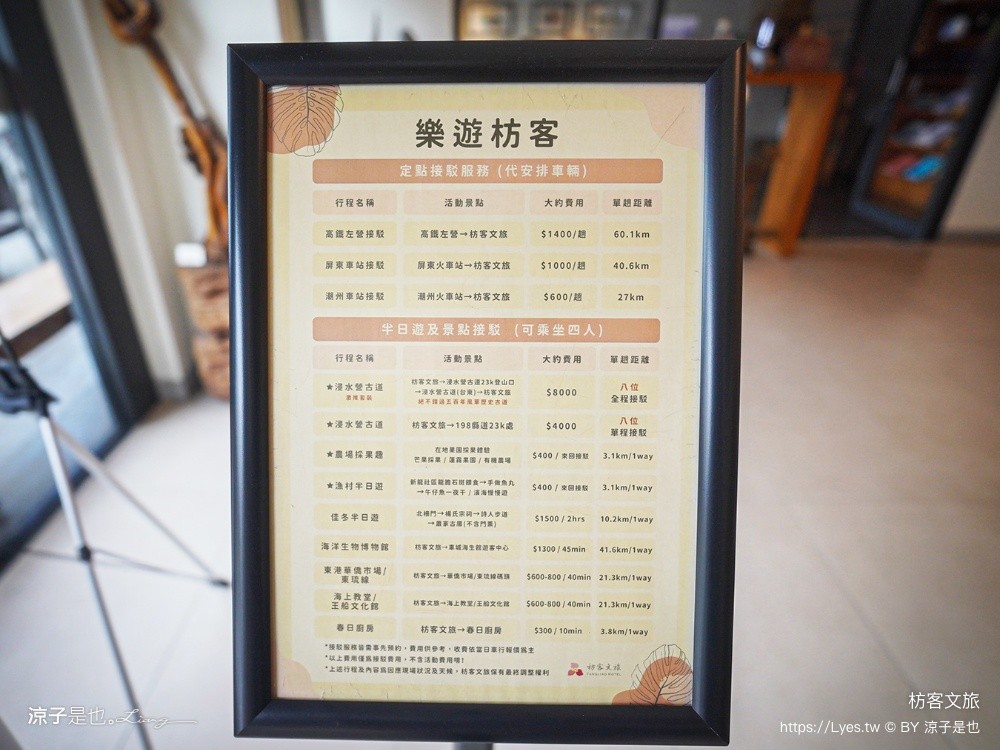 樂遊枋客
定點接駁服務 (代安排車輛)
行程名稱 活動景點 大約費用 單趟距離
高鐵左營接駁 高鐵左營→枋客文旅 $1400/趟 60.1km
屏東車站接駁 屏東火車站→枋客文旅 $1000/趟 40.6km
潮州車站接駁 潮州火車站→枋客文旅 $600/趟 27km
半日遊及景點接駁 (可乘坐四人)
行程名稱 活動景點 大約費用 單趟距離
★浸水營古道
枋客文旅→浸水營古道23k登山口
→浸水營古道(台東)→枋客文旅
絕不錯過五百年風華歷史古道
$8000
八位
全程接駁
★浸水營古道 枋客文旅→198縣道23k處 $4000
八位
單程接駁
★農場採果趣
在地果園採果體驗
芒果採果 / 蓮霧果園 / 有機農場
$400 / 來回接駁 3.1km/1way
★漁村半日遊
新龍社區龍膽石斑膳食→手做魚丸
→午仔魚一夜干 / 濱海慢慢遊
$400 / 來回接駁 3.1km/1way
佳冬半日遊
北柵門→楊氏宗祠→詩人步道
→蕭家古厝(不含門票)
$1500 / 2hrs 10.2km/1way
海洋生物博物館 枋客文旅→車城海生館遊客中心 $1300 / 45min 41.6km/1way
東港華僑市場/
東琉線
枋客文旅→華僑市場/東琉線碼頭 $600-800 / 40min 21.3km/1way
海上教堂/
王船文化館
枋客文旅→海上教堂/王船文化館 $600-800 / 40min 21.3km/1way
春日廚房 枋客文旅→春日廚房 $300 / 10min 3.8km/1way
*接駁服務皆需事先預約，費用供參考，收費依當日車行報價為主
*以上費用僅為接駁費用，不含活動費用唷!
*上述行程及內容為因應現場狀況及天候，枋客文旅保有最終調整權利
枋客文旅
涼子是也。Liang
枋客文旅
https://Lyes.tw © BY 涼子是也